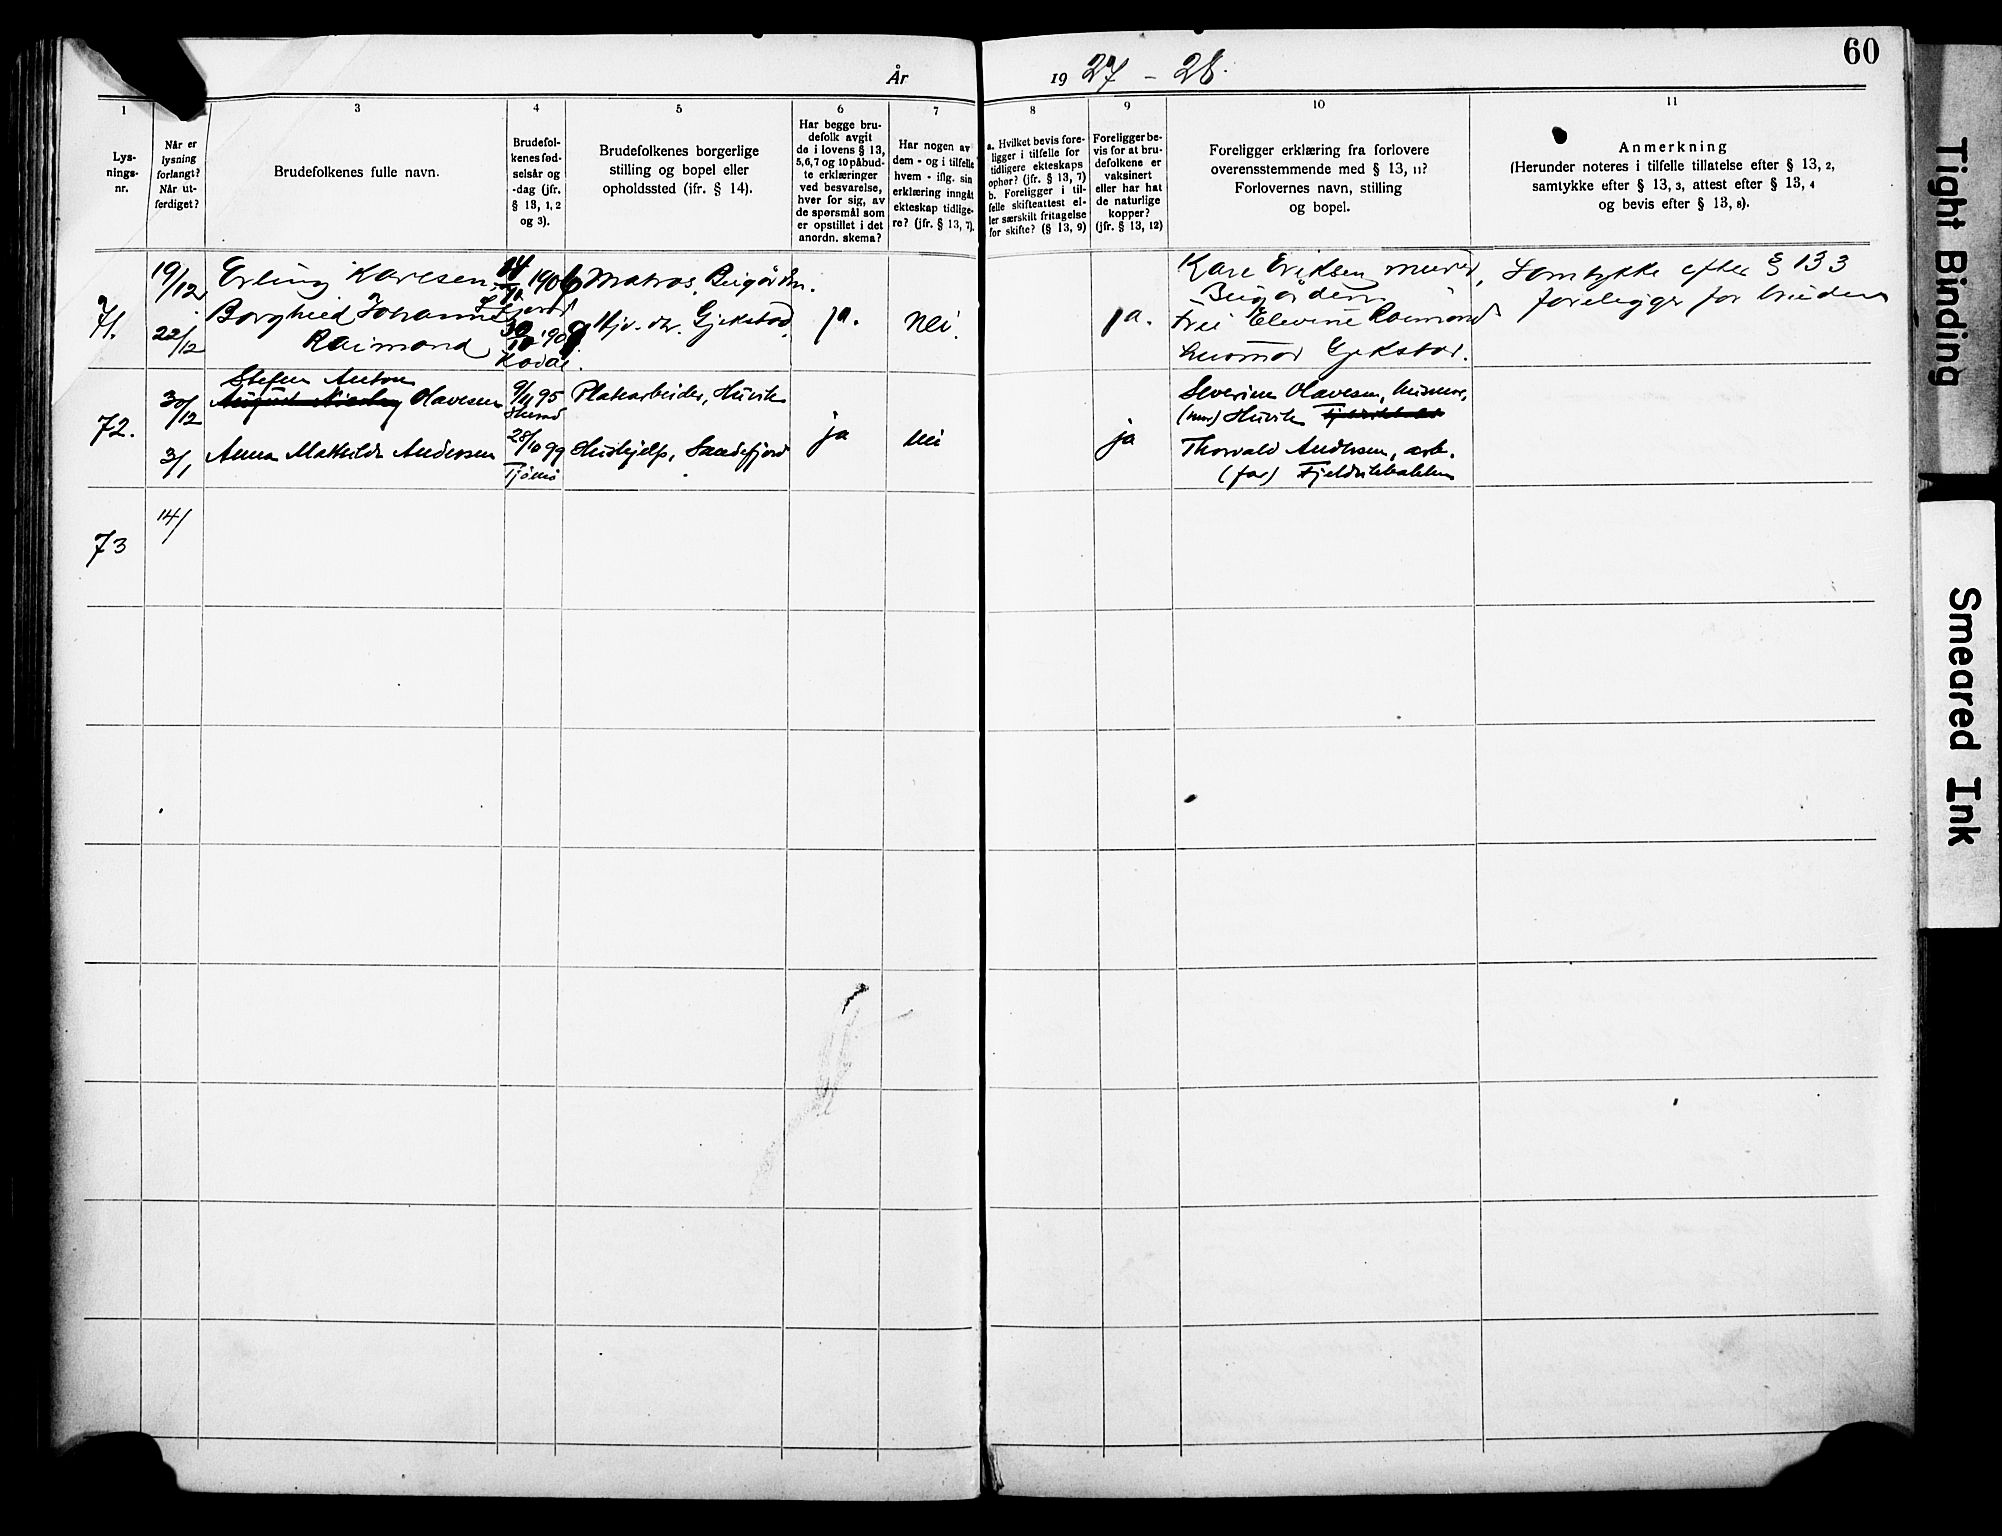 60
År 1927 - 28.
1
Lys-
nings-
nr.
Når er
lysning
forlangt?
Når ut-
ferdiget?
3
Brudefolkenes fulle navn.
4
Brudefol-
kenes fød-
selsår og
-dag (jfr.
§ 13, 1, 2
og 3).
5
Brudefolkenes borgerlige
stilling og bopel eller
opholdssted (jfr. § 14).
6
Har begge bru-
defolk avgit
de i lovens § 13,
5, 6, 7 og 10 påbud-
te erklæringer
ved besvarelse,
hver for sig, av
de spørsmål som
er opstillet i det
anordn. skema?
7
Har nogen av
dem - og i tilfelle
hvem - iflg. sin
erklæring inngått
ekteskap tidlige-
re? (jfr. § 13, 7).
8
a. Hvilket bevis fore-
ligger i tilfelle for
tidligere ekteskaps
ophør? (jfr. § 13, 7)
b. Foreligger i til-
felle skifteattest el-
ler særskilt fritagelse
for skifte? (§ 13, 9)
9
Foreligger be-
vis for at bru-
defolkene er
vaksinert
eller har hat
de naturlige
kopper?
(jfr. § 13, 12)
10
Foreligger erklæring fra forlovere
overensstemmende med § 13, 11?
Forlovernes navn, stilling
og bopel.
11
Anmerkning
(Herunder noteres i tilfelle tillatelse efter § 13, 2,
samtykke efter § 13, 3, attest efter § 13, 4
og bevis efter § 13, 8).
71.
19/12
22/12
Erling Karlsen
Borghild Johanne
Raimond
1906
Kodal
Matros,
Hjv. dtr. Gjekstad
ja.
Nei.
ja.
Kare Eriksen murer,
Elevine Raimond
Gjekstad.
Samtykke efter § 13 3
foreligger for bruden
72.
30/12
3/1
Stefen Anton
Olavesen
Anna Mathilde Andersen
9/11 95
28/10 99
Tjømø
Platearbeider, Huvik
Hushjelp, Sandefjord
ja
nei
ja
Severine Olavesen, husmor,
(mor) Huvik
Thorvald Andersen, arb.
(far) Fjeldvikbakken
73
14/
Tight Binding
Smeared Ink